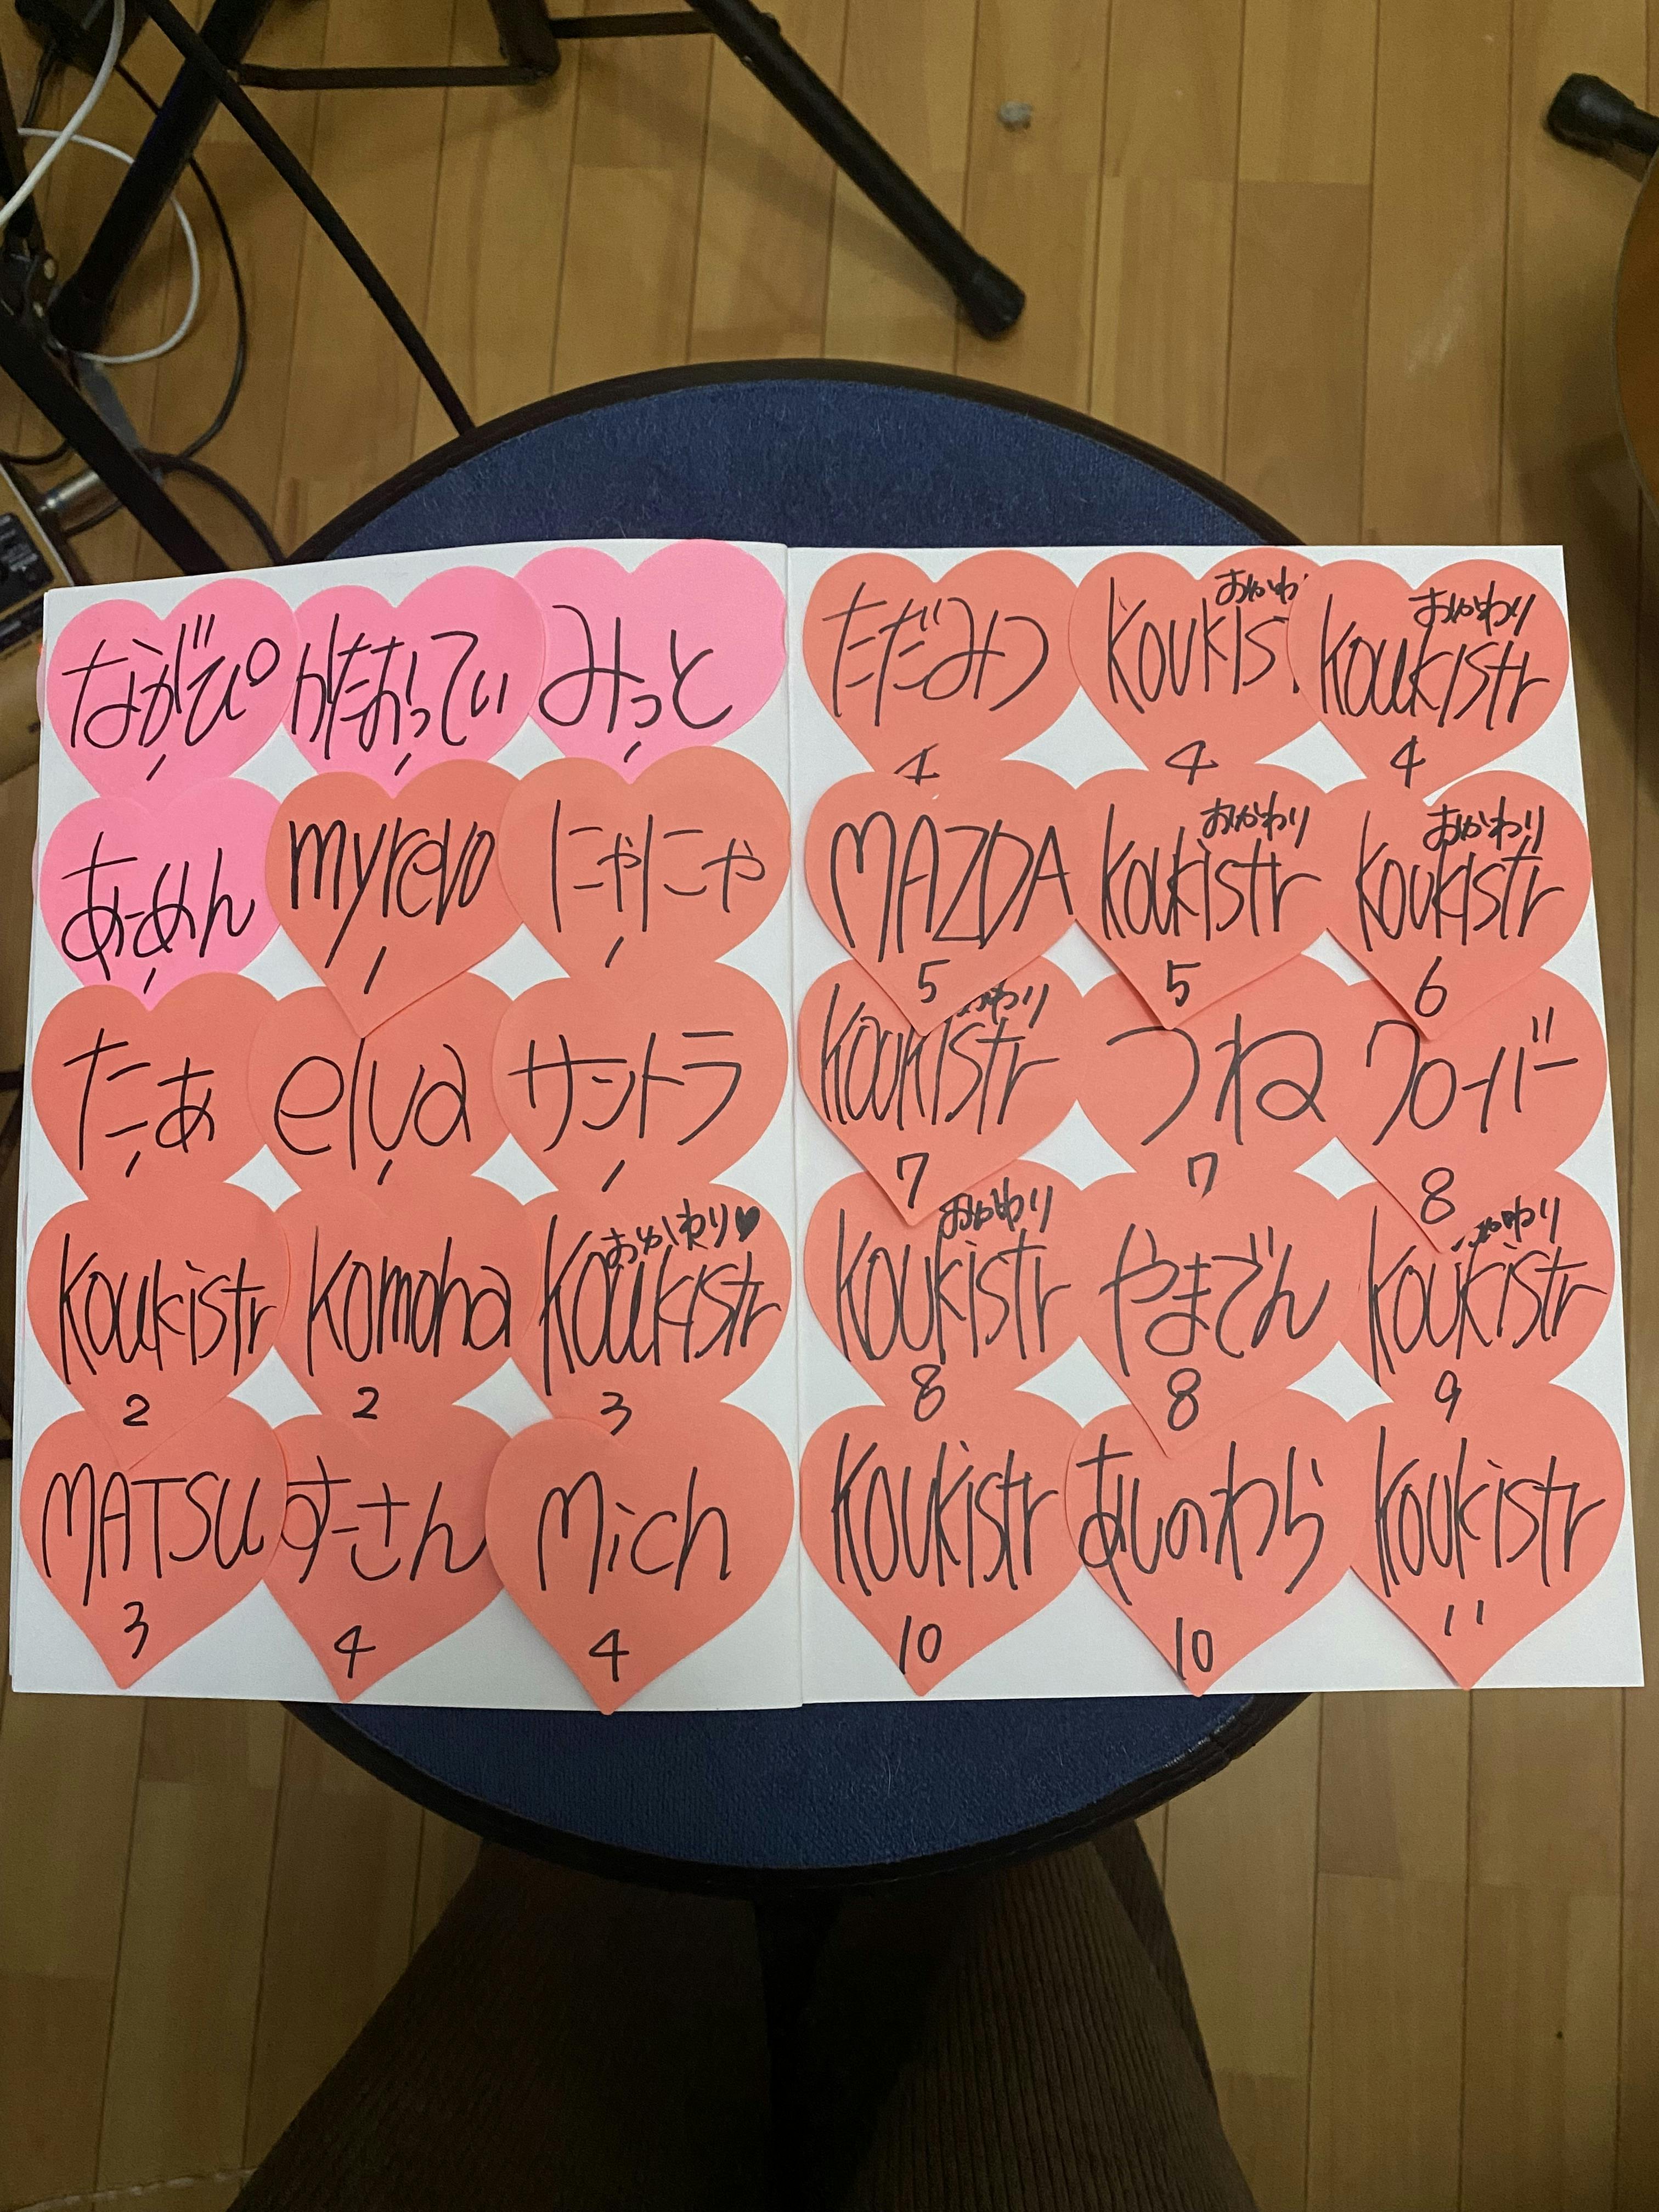 ながぴ
1
かたおってい
1
みっと
1
あーめん
1
myrevo
1
にゃにこや
1
たーあ
1
elua
1
サントラ
1
koukistr
2
komoha
2
おかわり♥
koukistr
3
MATSU
3
すーさん
4
Mich
4
ただみつ
4
おかわ
koukis
4
おかわり
koukistr
4
MAZDA
5
おかわり
koukistr
5
おかわり
koukistr
6
かわり
koukistr
7
つね
7
クローバー
8
おかわり
koukistr
8
やまでん
8
かわり
koukistr
9
koukistr
10
あしのわら
10
koukistr
11